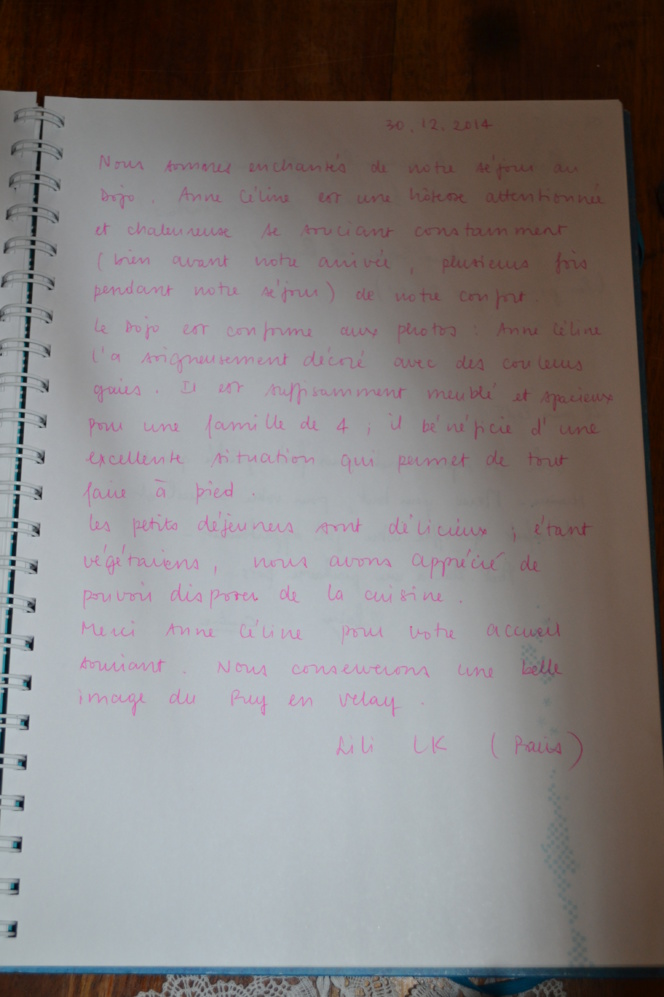 30.12.2014
Nous sommes enchantés de notre séjour au
Dojo. Anne Céline est une hôtesse attentionnée
et chaleureuse se souciant constamment
(bien avant notre arrivée, plusieurs fois
pendant notre séjour) de notre confort.
Le Dojo est conforme aux photos : Anne Céline
l'a soigneusement décoré avec des couleurs
gaies. Il est suffisamment meublé et spacieux
pour une famille de 4 ; il bénéficie d'une
excellente situation qui permet de tout
faire à pied.
Les petits déjeuners sont délicieux ; étant
végétariens, nous avons apprécié de
pouvoir disposer de la cuisine.
Merci Anne Céline pour votre accueil
souriant. Nous conserverons une belle
image du Puy en Velay.
Lili LK (Paris)